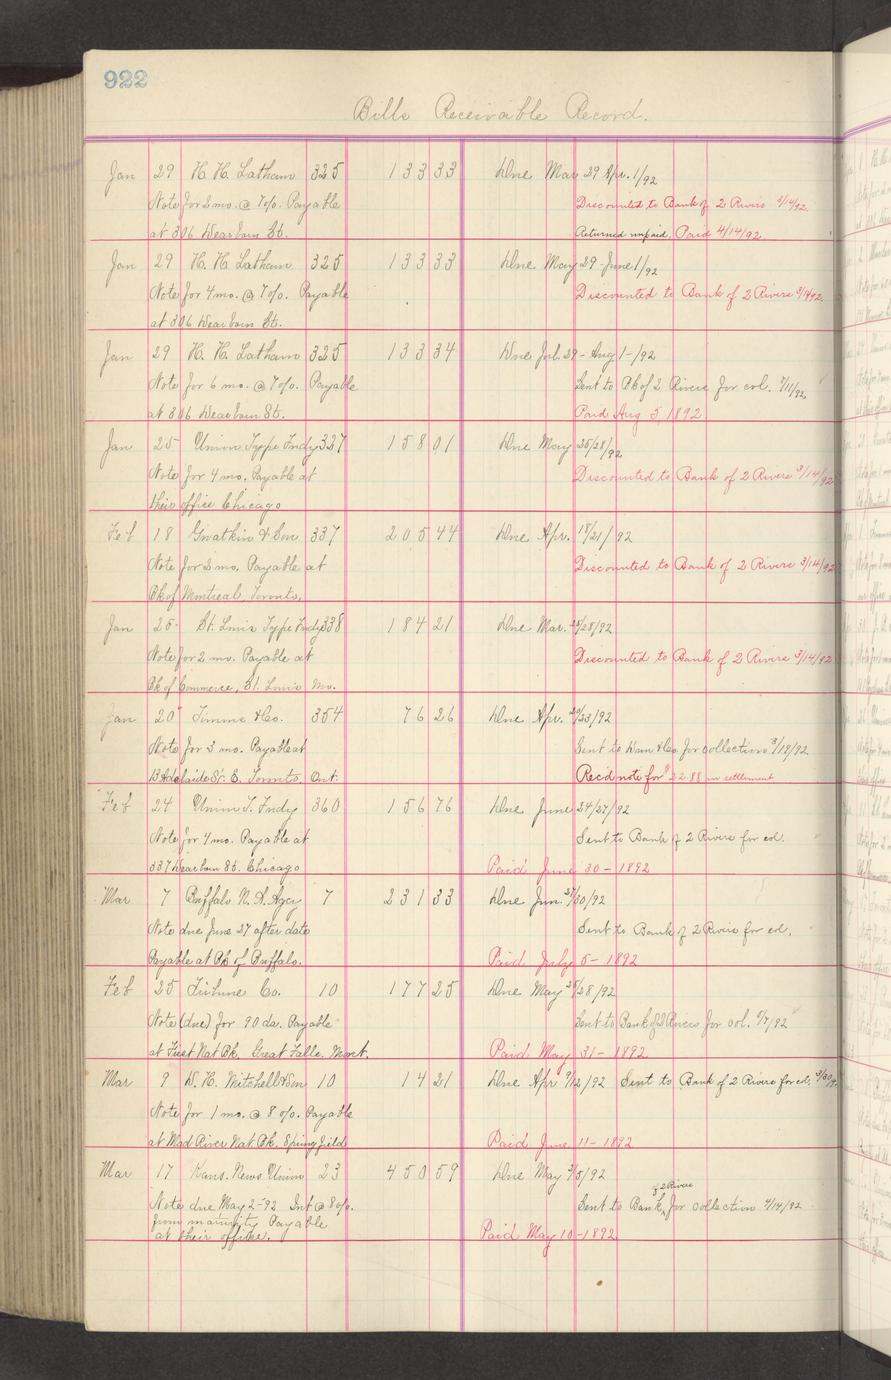 922
Bills Receivable Record.
Jan 29 H. H. Latham 325 133 33 Due Mar 29 Apr. 1/92
Note for 2 mo. @ 7 o/o. Payable Discounted to Bank of 2 Rivers 3/14/92.
at 306 Dearborn St. Returned unpaid. Paid 4/14/92
Jan 29 H. H. Latham 325 133 33 Due May 29 - June 1/92
Note for 4 mo. @ 7 o/o. Payable Discounted to Bank of 2 Rivers 3/14/92.
at 306 Dearborn St.
Jan 29 H. H. Latham 325 133 34 Due Jul. 29 - Aug 1 -/92
Note for 6 mo. @ 7 o/o. Payable Sent to Bk of 2 Rivers for col. 7/11/92
at 306 Dearborn St. Paid Aug 5 1892
Jan 25 Union Type Fndy 327 158 01 Due May 25/28/92
Note for 4 mo. Payable at Discounted to Bank of 2 Rivers 3/14/92
their office Chicago
Feb 18 Gwatkin & Son 337 205 44 Due Apr. 18/21/92
Note for 2 mo. Payable at Discounted to Bank of 2 Rivers 3/14/92
Bk of Montreal, Toronto.
Jan 25 St. Louis Type Fndy 338 184 21 Due Mar. 25/28/92
Note for 2 mo. Payable at Discounted to Bank of 2 Rivers 3/14/92
Bk of Commerce, St. Louis Mo.
Jan 20 Timms & Co. 354 76 26 Due Apr. 20/23/92
Note for 3 mo. Payable at Sent to & Co. for collection 3/19/92
13 Adelaide St. E. Toronto, Ont: Rec'd note for $22.88 in settlement
Feb 24 Union T. Fndy 360 156 76 Due June 24/27/92
Note for 4 mo. Payable at Sent to Bank of 2 Rivers for col.
337 Dearborn St. Chicago Paid June 30 - 1892
Mar 7 Buffalo N. A. Agcy 7 231 33 Due Jun. 27/30/92
Note due June 27 after date Sent to Bank of 2 Rivers for col.
Payable at Bk of Buffalo. Paid July 5 - 1892
Feb 25 Tribune Co. 10 177 25 Due May 25/28/92
Note (due) for 90 da. Payable Sent to Bank of 2 Rivers for col. 5/7/92
at First Nat Bk. Great Falls. Mont. Paid May 31 - 1892
Mar 9 D. H. Mitchell & Son 10 14 21 Due Apr 9/12/92 Sent to Bank of 2 Rivers for col. 3/30/92
Note for 1 mo. @ 8 o/o. Payable
at Mad River Nat Bk. Springfield Paid June 11 - 1892
Mar 17 Kans. News Union 23 450 59 Due May 2/5/92
of 2 Rivers
Note due May 2 - 92 Int @ 8 o/o. Sent to Bank for collection 4/14/92
from maturity Payable
at their office. Paid May 10 - 1892